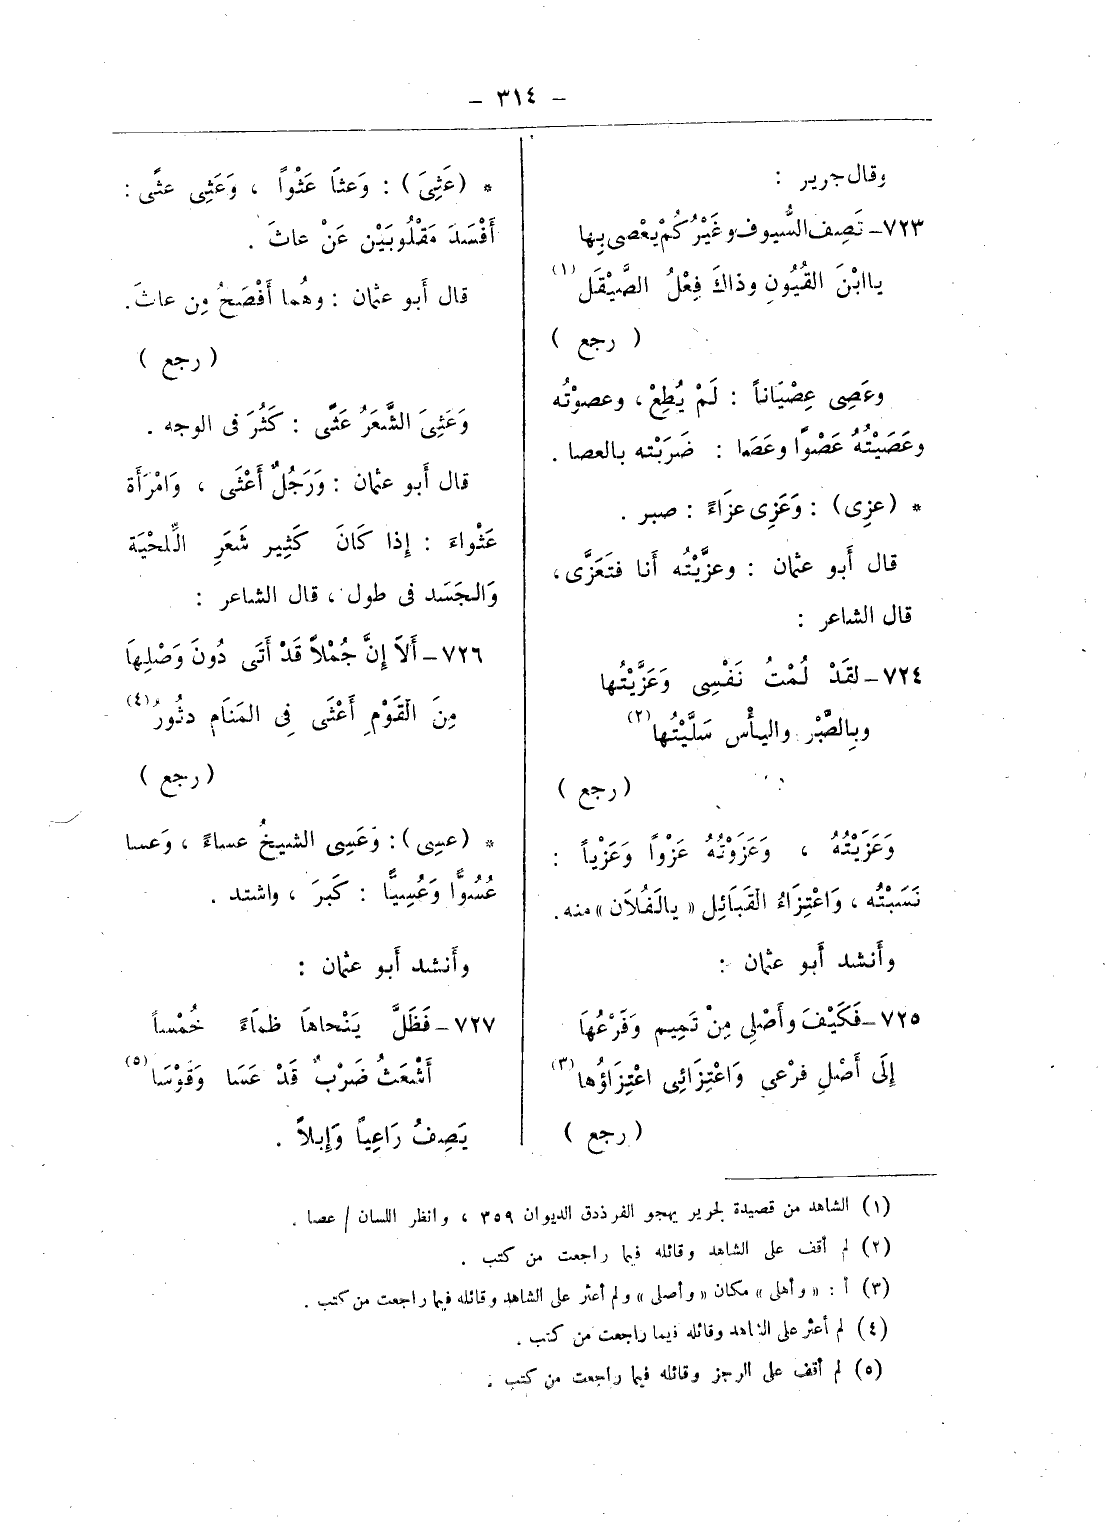 - ٣١٤ -
وقال جرير :
٧٢٣- تَصِف السُّيوف وغَيْرُكُمْ يعْصى بِها
يا ابْنَ القُيُونِ وذاكَ فِعْلُ الصَّيْقَل (١)
( رجع )
وعَصِى عِصْيَاناً : لَمْ يُطِعْ ، وعصوْتُه
وعَصَيْتُهُ عَصْوًا وعَصَا : ضَرَبْته بالعصا .
* (عزِى) : وَعَزِى عزَاءً : صبر .
قال أَبو عثمان : وعزَّيْتُه أَنا فتَعَزَّى ،
قال الشاعر :
٧٢٤- لقَدْ لُمْتُ نَفْسِى وَعَزَّيْتُها
وبِالصَّبْر واليأْس سَلَّيْتُها (٢)
( رجع )
وَعَزَيْتُهُ ، وَعَزَوْتُهُ عَزْواً وَعَزْياً :
نَسَبْتُه ، وَاعْتِزَاءُ القَبَائِل « يالَفُلَان » منه .
وأَنشد أَبو عثمان :
٧٢٥- فَكَيْفَ وأَصْلِى مِنْ تَمِيم وَفَرْعُهَا
إِلَى أَصْلِ فرْعى وَاعْتِزَائِى اعْتِزَاؤُها (٣)
( رجع )
* (عَثِىَ) : وَعثا عَثْواً ، وَعَثِى عثًى :
أَفْسَدَ مَقْلُوبَيْن عَنْ عاثَ .
قال أَبو عثمان : وهُما أَفْصَحُ مِن عاثَ .
( رجع )
وَعَثِىَ الشَّعَرُ عَثًى : كَثُرَ فى الوجه .
قال أَبو عثمان : وَرَجُلٌ أَعْثَى ، وَامْرَأَة
عَثْواء : إِذا كَانَ كَثِير شَعَرِ اللِّحْيَة
وَالجَسَد فى طول ، قال الشاعر :
٧٢٦- أَلاَ إِنَّ جُمْلاً قَدْ أَتَى دُونَ وَصْلِهَا
مِنَ الْقَوْمِ أَعْثَى فِى المَنَامِ دثُورُ (٤)
( رجع )
* (عسِى) : وَعَسِى الشيخُ عساءً ، وَعسا
عُسُوًّا وَعُسِيًّا : كَبرَ ، واشتد .
وأَنشد أَبو عثمان :
٧٢٧- فَظَلَّ يَنْحاهَا ظماءً خُمْساً
أَشْعَثُ ضَرْبٌ قَدْ عَسَا وَقَوْسَا (٥)
يَصِفُ رَاعِياً وَإِبلاً .
(١) الشاهد من قصيدة لجرير يهجو الفرزدق الديوان ٣٥٩ ، وانظر اللسان / عصا .
(٢) لم أقف على الشاهد وقائله فيما راجعت من كتب .
(٣) أ : « وأهلى » مكان « وأصلى » ولم أعثر على الشاهد وقائله فيما راجعت من كتب .
(٤) لم أعثر على الشاهد وقائله فيما راجعت من كتب .
(٥) لم أقف على الرجز وقائله فيما راجعت من كتب .